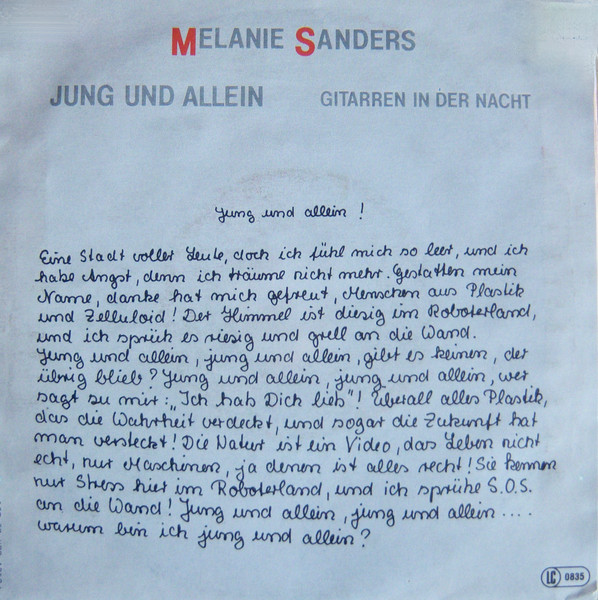 MELANIE SANDERS
JUNG UND ALLEIN GITARREN IN DER NACHT
Jung und allein !
Eine Stadt voller Leute, doch ich fühl mich so leer, und ich
habe Angst, denn ich träume nicht mehr. Gestatten mein
Name, danke hat mich gefreut, Menschen aus Plastik
und Zelluloid! Der Himmel ist diesig im Roboterland,
und ich sprüh es riesig und grell an die Wand.
Jung und allein, jung und allein, gibt es keinen, der
übrig blieb? Jung und allein, jung und allein, wer
sagt zu mir: „Ich hab Dich lieb"! Überall alles Plastik,
das die Wahrheit verdeckt, und sogar die Zukunft hat
man versteckt! Die Natur ist ein Video, das Leben nicht
echt, nur Maschinen, ja denen ist alles recht! Sie kennen
nur Stress hier im Roboterland, und ich sprühe S.O.S.
an die Wand! Jung und allein, jung und allein ....
warum bin ich jung und allein?
LC 0835